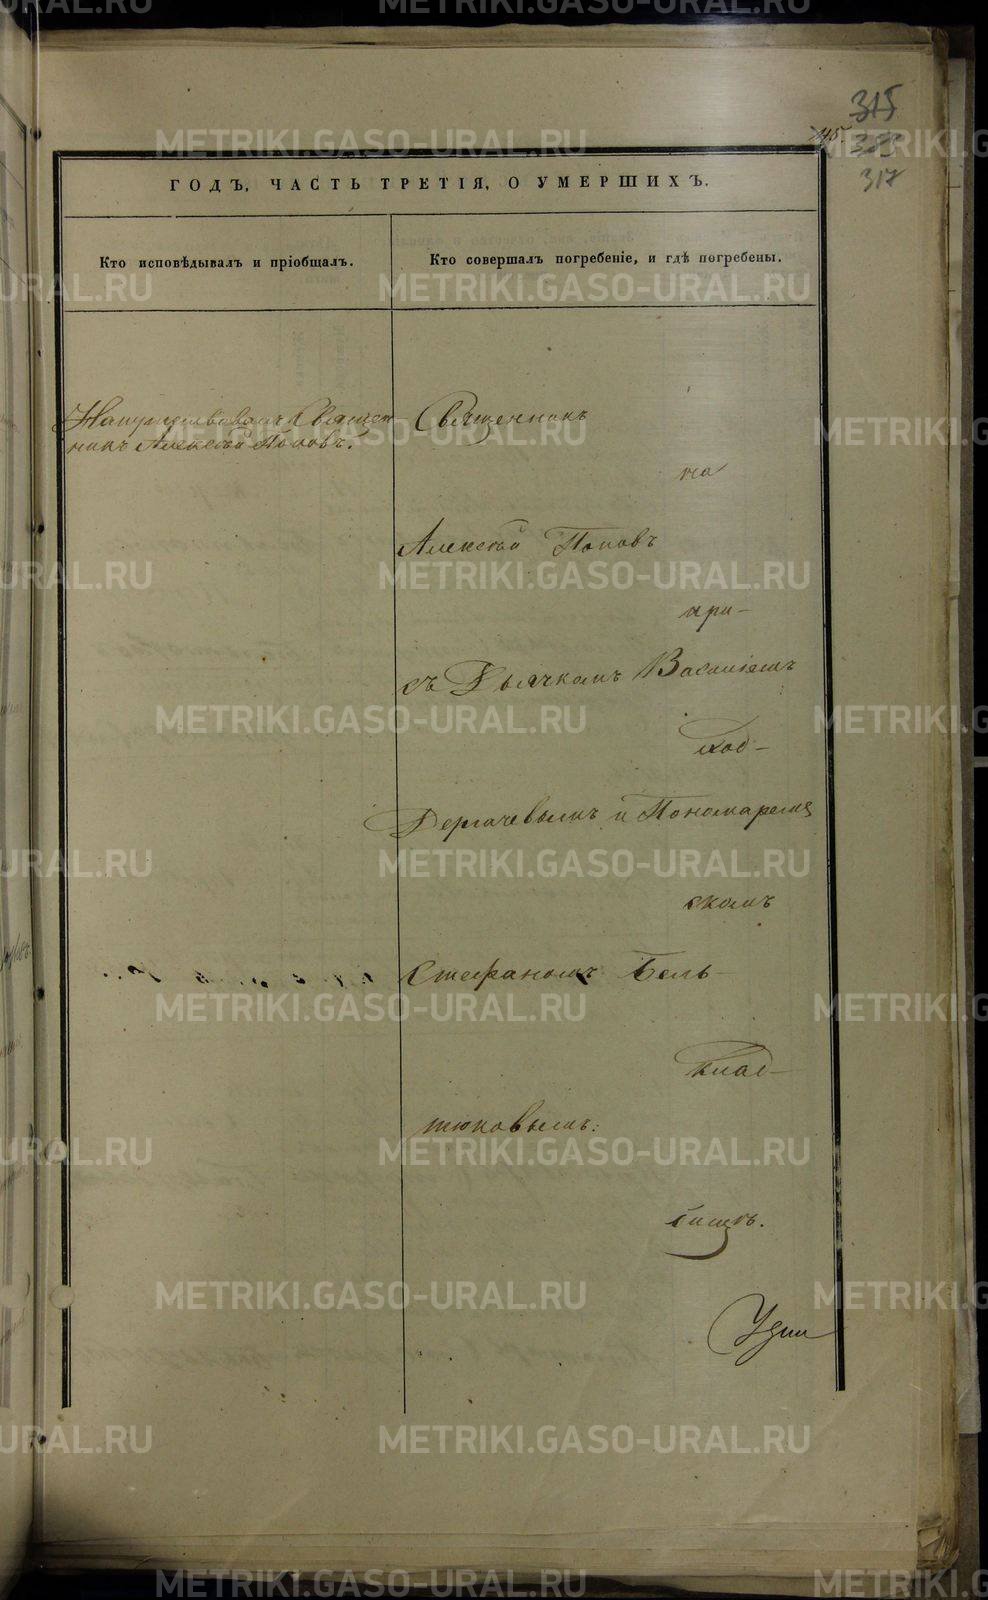 315
45.
317
ГОДЪ, ЧАСТЬ ТРЕТІЯ, О УМЕРШИХЪ.
Кто исповѣдывалъ и пріобщалъ.
Кто совершалъ погребеніе, и гдѣ погребены.
Напутствовалъ Священ
никъ Алексѣй Поповъ.
Священникъ
на
Алексѣй Поповъ
при-
съ Дьячкомъ Василіемъ
ход-
Дергачевымъ и Пономаремъ
скомъ
Стефаномъ Бель-
клад-
тюковымъ:
бищѣ.
METRIKI.GASO-URAL.RU